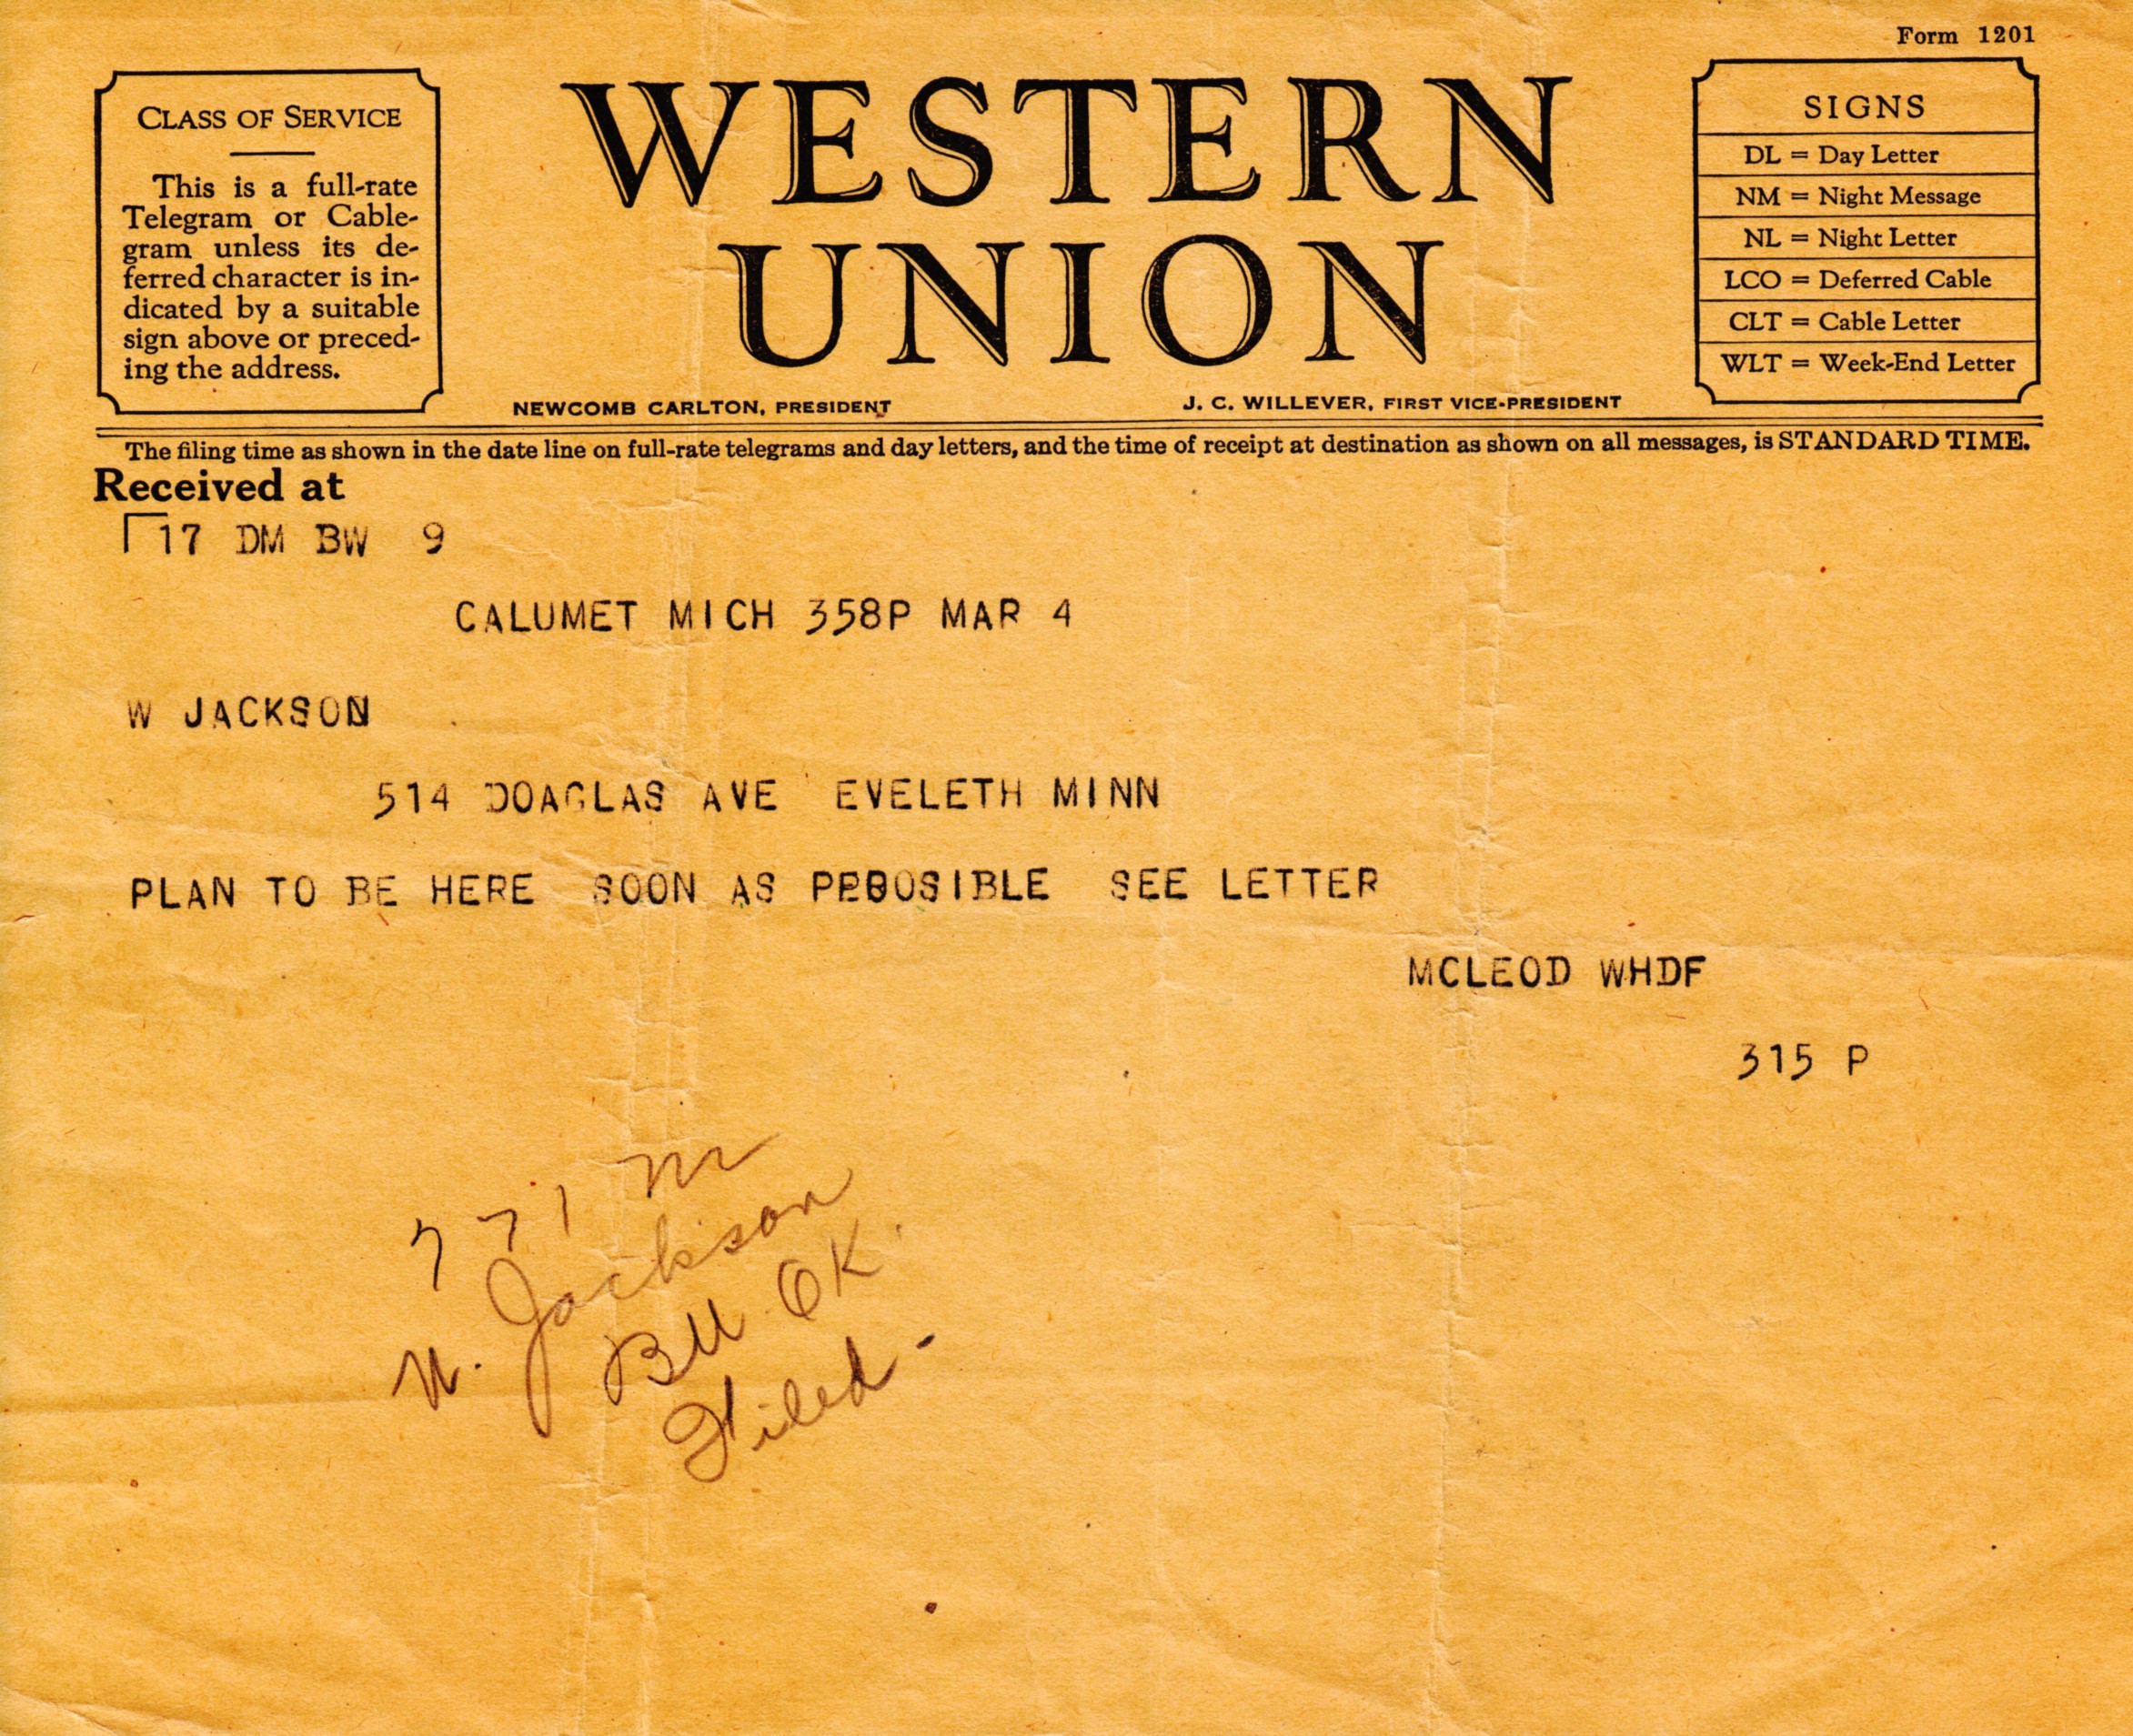 Form 1201
CLASS OF SERVICE
This is a full-rate
Telegram or Cable-
gram unless its de-
ferred character is in-
dicated by a suitable
sign above or preced-
ing the address.
WESTERN
UNION
NEWCOMB CARLTON, PRESIDENT
J. C. WILLEVER, FIRST VICE-PRESIDENT
SIGNS
DL = Day Letter
NM = Night Message
NL = Night Letter
LCO = Deferred Cable
CLT = Cable Letter
WLT = Week-End Letter
The filing time as shown in the date line on full-rate telegrams and day letters, and the time of receipt at destination as shown on all messages, is STANDARD TIME.
Received at
17 DM BW 9
CALUMET MICH 358P MAR 4
W JACKSON
514 DOAGLAS AVE EVELETH MINN
PLAN TO BE HERE SOON AS SEE LETTER
MCLEOD WHDF
315 P
771 M
W. Jackson
BM OK.
Filed -